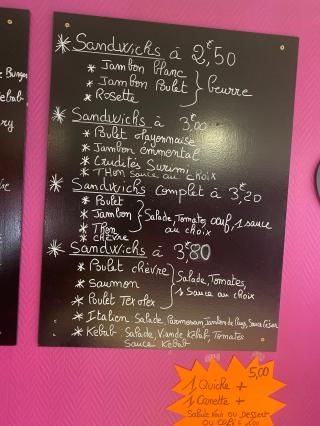 * Sandwichs à 2,€50
* Jambon blanc
* Jambon Poulet } beurre
* Rosette
* Sandwichs à 3,€00
* Poulet Mayonnaise
* Jambon emmental
* Crudités Surimi
* Thon Sauce au choix
* Sandwichs complet à 3,€20
* Poulet
* Jambon } Salade, Tomates, oeuf, 1 sauce au choix
* Thon
* chèvre
* Sandwichs à 3,€80
* Poulet chèvre
* Saumon } Salade, Tomates, 1 Sauce au choix
* Poulet Tex Mex
* Italien Salade, Parmesan, Jambon de Pays, Sauce César
* Kebab Salade, Viande Kebab, Tomates
Sauce Kebab
5,00
1 Quiche +
1 Canette +
Salade Fruit ou Dessert
ou café
Burger
Kebab